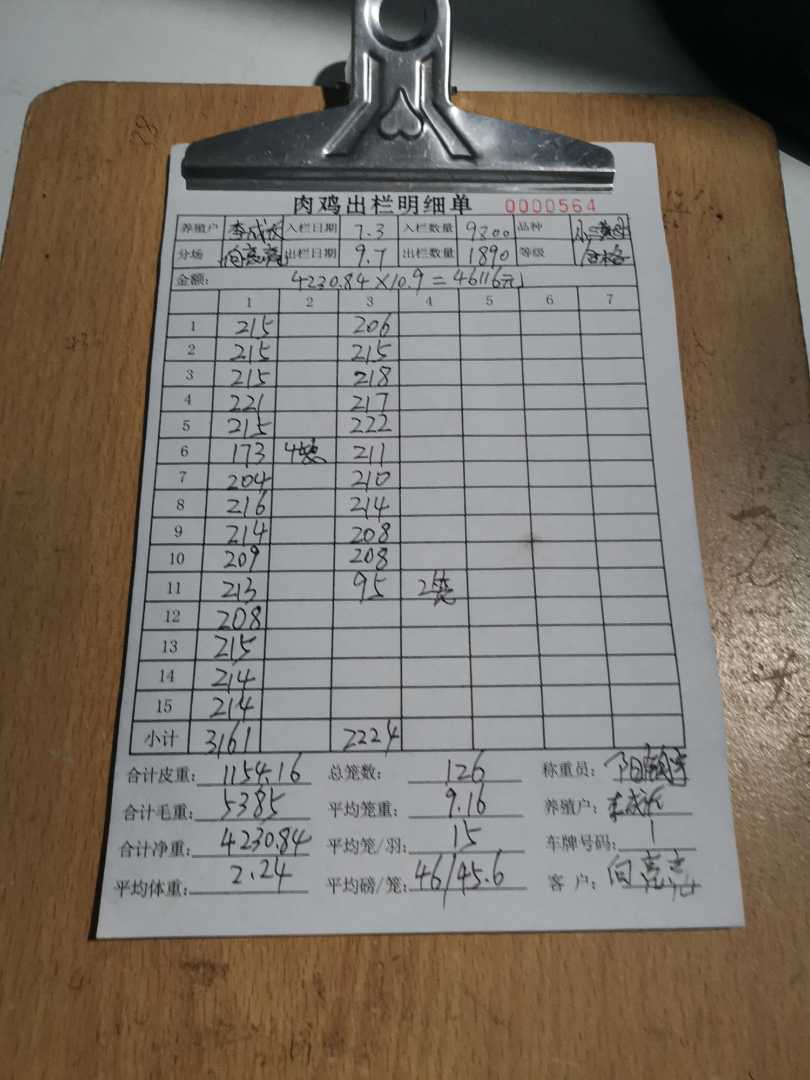 肉鸡出栏明细单 0000564
养殖户 李成长 入栏日期 7.3 入栏数量 9200 品种
分场 向亮亮 出栏日期 9.7 出栏数量 1890 等级 合格
金额: 4230.84×10.9=46116元
1 2 3 4 5 6 7
1 215 206
2 215 215
3 215 218
4 221 217
5 215 222
6 173 4笼 211
7 204 210
8 216 214
9 214 208
10 209 208
11 213 95 2笼
12 208
13 215
14 214
15 214
小计 3161 2224
合计皮重: 1154.16 总笼数: 126 称重员:
合计毛重: 5385 平均笼重: 9.16 养殖户: 李成长
合计净重: 4230.84 平均笼/羽: 15 车牌号码: 1
平均体重: 2.24 平均磅/笼: 46/45.6 客户: 向亮亮